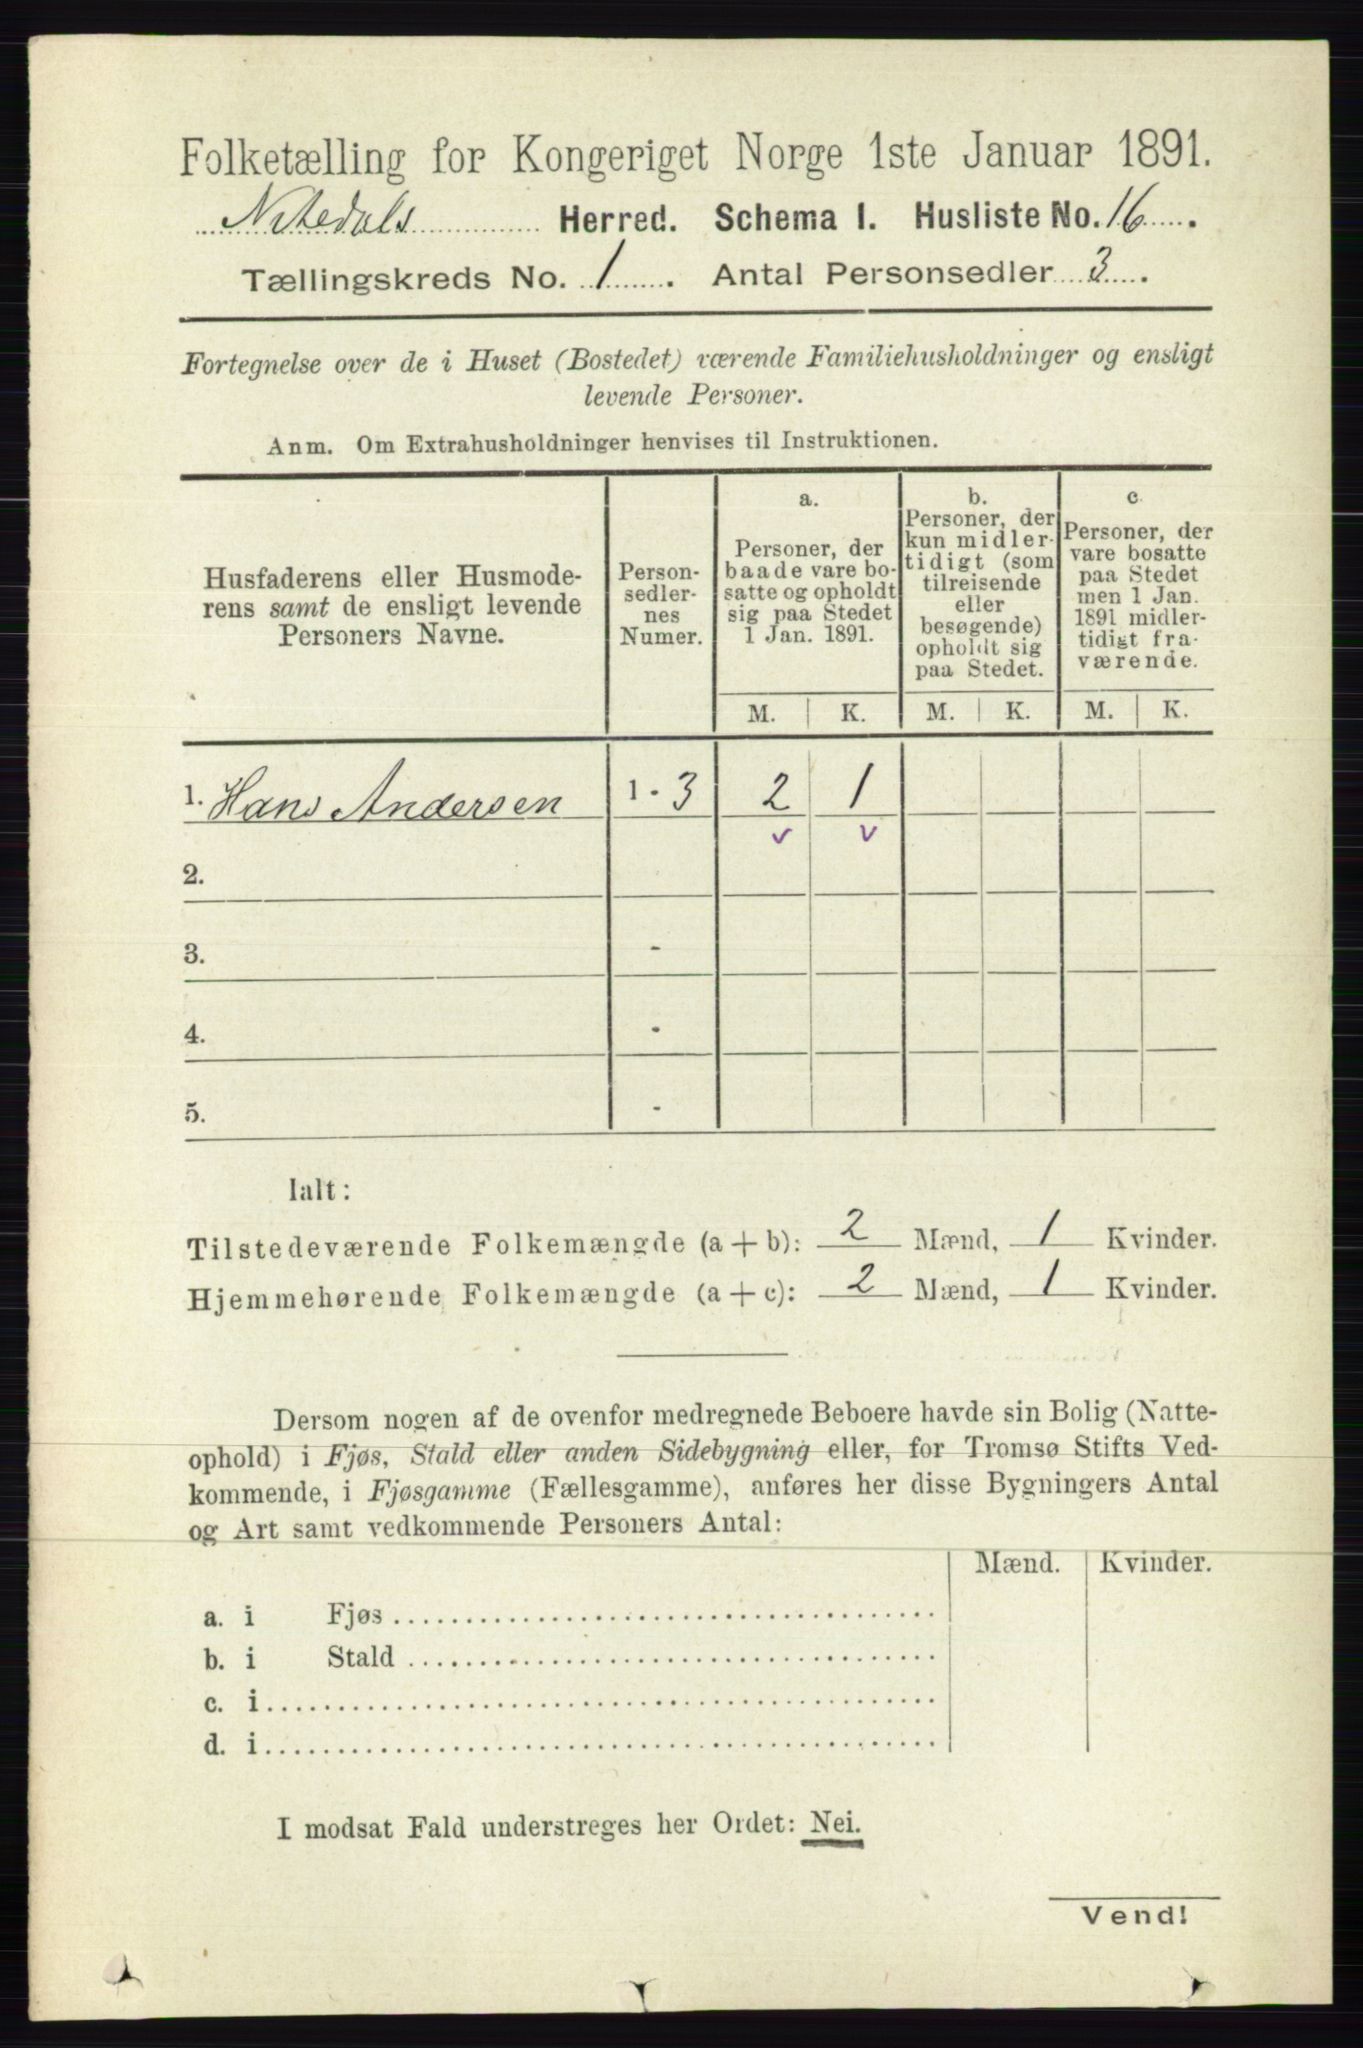 Folketælling for Kongeriget Norge 1ste Januar 1891.
Nitedals Herred. Schema I. Husliste No. 16.
Tællingskreds No. 1. Antal Personsedler 3.
Fortegnelse over de i Huset (Bostedet) værende Familiehusholdninger og ensligt
levende Personer.
Anm. Om Extrahusholdninger henvises til Instruktionen.
Husfaderens eller Husmode-
rens samt de ensligt levende
Personers Navne.
Person-
sedler-
nes
Numer.
a.
Personer, der
baade vare bo-
satte og opholdt
sig paa Stedet
1 Jan. 1891.
b.
Personer, der
kun midler-
tidigt (som
tilreisende
eller
besøgende)
opholdt sig
paa Stedet.
c.
Personer, der
vare bosatte
paa Stedet
men 1 Jan.
1891 midler-
tidigt fra-
værende.
M. K. M. K. M. K.
1. Hans Andersen 1 - 3 2 1
v v
2.
3. -
4. -
5. -
Ialt:
Tilstedeværende Folkemængde (a + b): 2 Mænd, 1 Kvinder.
Hjemmehørende Folkemængde (a + c): 2 Mænd, 1 Kvinder.
Dersom nogen af de ovenfor medregnede Beboere havde sin Bolig (Natte-
ophold) i Fjøs, Stald eller anden Sidebygning eller, for Tromsø Stifts Ved-
kommende, i Fjøsgamme (Fællesgamme), anføres her disse Bygningers Antal
og Art samt vedkommende Personers Antal:
Mænd. Kvinder.
a. i Fjøs
b. i Stald
c. i
d. i
I modsat Fald understreges her Ordet: Nei.
Vend!